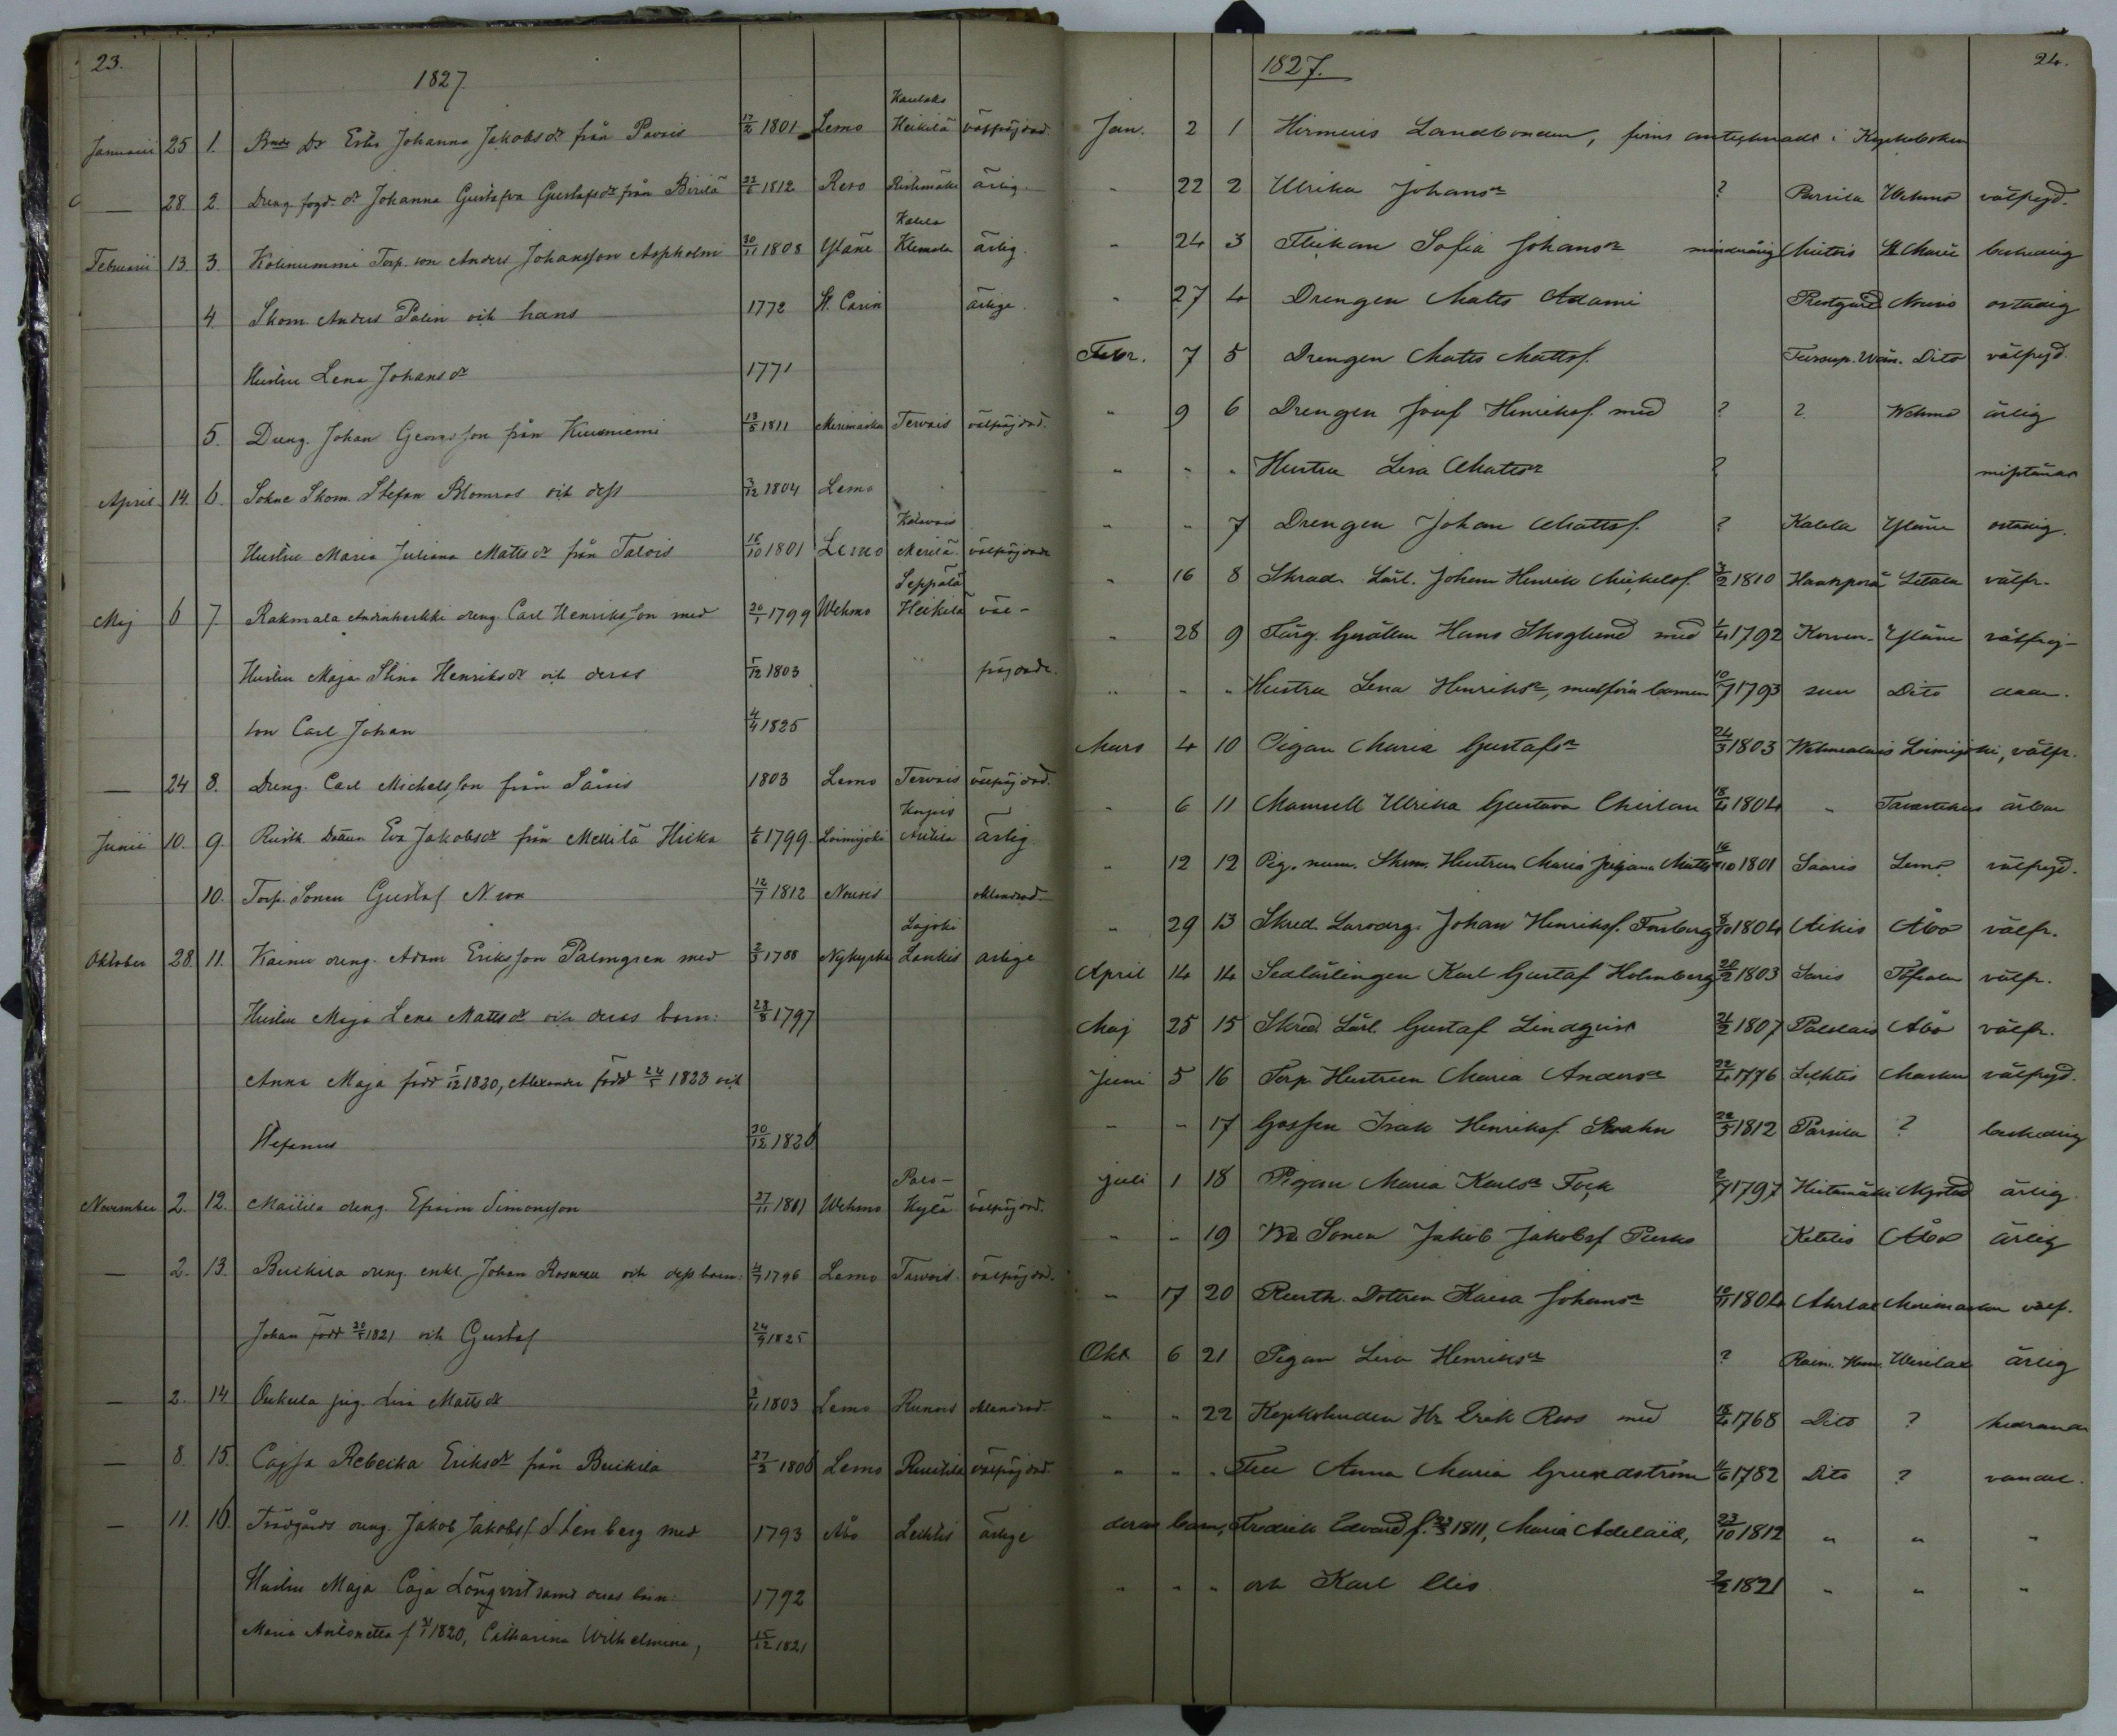 23.
1827
Januarii 25 1. Bnds Dr Erika Johanna Jakobsdr från Pavais 17/2 1801 Lemo Kaulaks Heikilä välfräjdad.
— 28. 2. Dreng fogd. dr Johanna Gustafva Gustafsdr från Birilä 22/6 1812 Reso Ristimäki ärlig
Februarii 13. 3. Kolinummi Torp. son Anders Johansson Aspholm 30/11 1808 Yläne Kalela Klemola ärlig.
4. Skom Anders Palin och hans 1772 St. Carin ärlige.
Hustru Lena Johansdr 1771
5. Dreng. Johan Georgsson från Kuusniemi 13/5 1811 Merimasku Tervais välfräjdad.
April 14. 6. Sokne Skom. Stefan Blomros och dess 3/12 1804 Lemo
Hustru Maria Juliana Mattsdr från Talois 16/10 1801 Lemo Kalevais Merilä välfräjdade
Maj 6 7. Rakmala Andinheikki dreng Carl Henriksson med 20/1 1799 Wehmo Seppälä Heikilä väl-
Hustru Maja Stina Henriksdr och deras 5/12 1803 fräjdade.
son Carl Johan 4/4 1825
— 24 8. Dreng. Carl Michelsson från Såinis 1803 Lemo Tervais välfräjdad.
Junii 10. 9. Rusth. Dottren Eva Jakobsdr från Mellilä Hicka 4/6 1799 Loimijoki Korpis Anttila ärlig
10. Torp. Sonen Gustaf N. son 12/7 1812 Nousis oklandrad
Oktober 28. 11. Kainu dreng. Adam Eriksson Palmgren med 2/3 1788 Nykyrka Lajoki Lankis ärlige
Hustru Maja Lena Mattsdr och deras barn: 28/8 1797
Anna Maja född 5/12 1820, Alexander född 24/5 1823 och
Stefanus 20/12 1826
November 2. 12. Mailila dreng. Efraim Simonsson 27/11 1801 Wehmo Palo- Kylä välfräjdad.
— 2. 13. Buikila dreng. enkl. Johan Rosnren och dess barn: 4/7 1796 Lemo Tarvois välfräjdad.
Johan född 20/5 1821 och Gustaf 24/9 1825
— 2. 14. Oukula pig. Lisa Mattsdr 3/11 1803 Lemo Runois oklandrad.
— 8. 15. Cajsa Rebecka Eriksdr från Buikila 27/2 1806 Lemo Ruukila välfräjdad.
— 11. 16. Trädgårds dreng. Jakob Jakobss. Stenberg med 1793 Åbo Leiktis ärlige
Hustru Maja Caja Löngvist samt deras barn: 1792
Maria Antonetta f 31/1 1820, Catharina Wilhelmina, 15/12 1821
24.
1827.
Jan. 2 1 Hirmuis Landbonden, finns antecknade i Kyrkoboken
" 22 2 Ulrika Johansdr ? Parsila Wehmo välfrejd.
" 24 3 Flickan Sofia Johansdr minderårig Mietois St Marie beskedlig
" 27 4 Drengen Matts Adami Prestgård Nousis ostadig
Febr. 7 5 Drengen Matts Mattsf. Tursup. Wän. Dito välfrejd.
" 9 6 Drengen Josef Henriksf. med ? ? Wehmo ärlig
" " " Hustru Lisa Mattsdr ? misstänkt
" " 7 Drengen Johan Mattsf. ? Kalela Yläne ostadig.
" 16 8 Skrad. Lärl. Johan Henrik Mickelsf. 3/2 1810 Haukporä Letala välfr.
" 28 9 Färg. Gesällen Hans Skoglund med 1/4 1792 Korven- Yläne välfrej-
" " " Hustru Lena Henriksdr, medföra barnen 10/7 1793 suu Dito dade.
Mars 4 10 Pigan Maria Gustafsdr 24/3 1803 Wehmalais Loimijoki, välfr.
" 6 11 Mamsell Ulrika Gustava Cheilan 18/10 1804 " Tavastehus ärbar
" 12 12 Pig. num. Skom. Hustrun Maria Juliana Mattsdr 16/10 1801 Saaris Lemo välfrejd.
" 29 13 Skred. Larodrg. Johan Henriksf. Forsberg 8/10 1804 Aikis Åbo välfr.
April 14 14 Sadlärlingen Karl Gustaf Holmberg 20/2 1803 Saris Töfsala välfr.
Maj 25 15 Skrad. Lärl. Gustaf Lindqvist 21/2 1807 Palslais Åbo välfr.
Juni 5 16 Torp. Hustrun Maria Andersdr 22/4 1776 Leiktis Masku välfrejd.
" " 17 Gossen Isak Henriksf. Strahn 22/5 1812 Parsila ? beskedlig
juli 1 18 Pigan Maria Karlsdr Fock 2/7 1797 Hietamäki Nystad ärlig
" " 19 Bd. Sonen Jakob Jakobsf Purho Ketelis Åbo ärlig
" 17 20 Rusth. Dottren Kaisa Johansdr 10/11 1804 Ahrlax Merimasku välf.
Okt 6 21 Pigan Lisa Henriksdr ? Raim. Hem. Wirilax ärlig
" " 22 Kyrkoherden Hr Erik Roos med 18/4 1768 Dito ? hedrande
" " " Fru Anna Maria Grundström 4/6 1782 Dito ? vandel.
deras barn, Fredrick Edvard f. 22/3 1811, Maria Adelaid, 23/10 1812 " " "
" " " och Karl Elis 2/2 1821 " " "